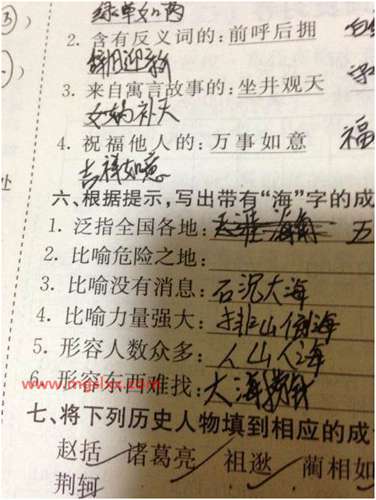 绿草如茵
2. 含有反义词的: 前呼后拥
辞旧迎新
3. 来自寓言故事的: 坐井观天
女娲补天
4. 祝福他人的: 万事如意 福
吉祥如意
六、根据提示,写出带有“海”字的成
1. 泛指全国各地: 五
2. 比喻危险之地:
3. 比喻没有消息: 石沉大海
4. 比喻力量强大: 排山倒海
5. 形容人数众多: 人山人海
6. 形容东西难找: 大海捞针
七、将下列历史人物填到相应的成
赵括 诸葛亮 祖逖 蔺相如
荆轲